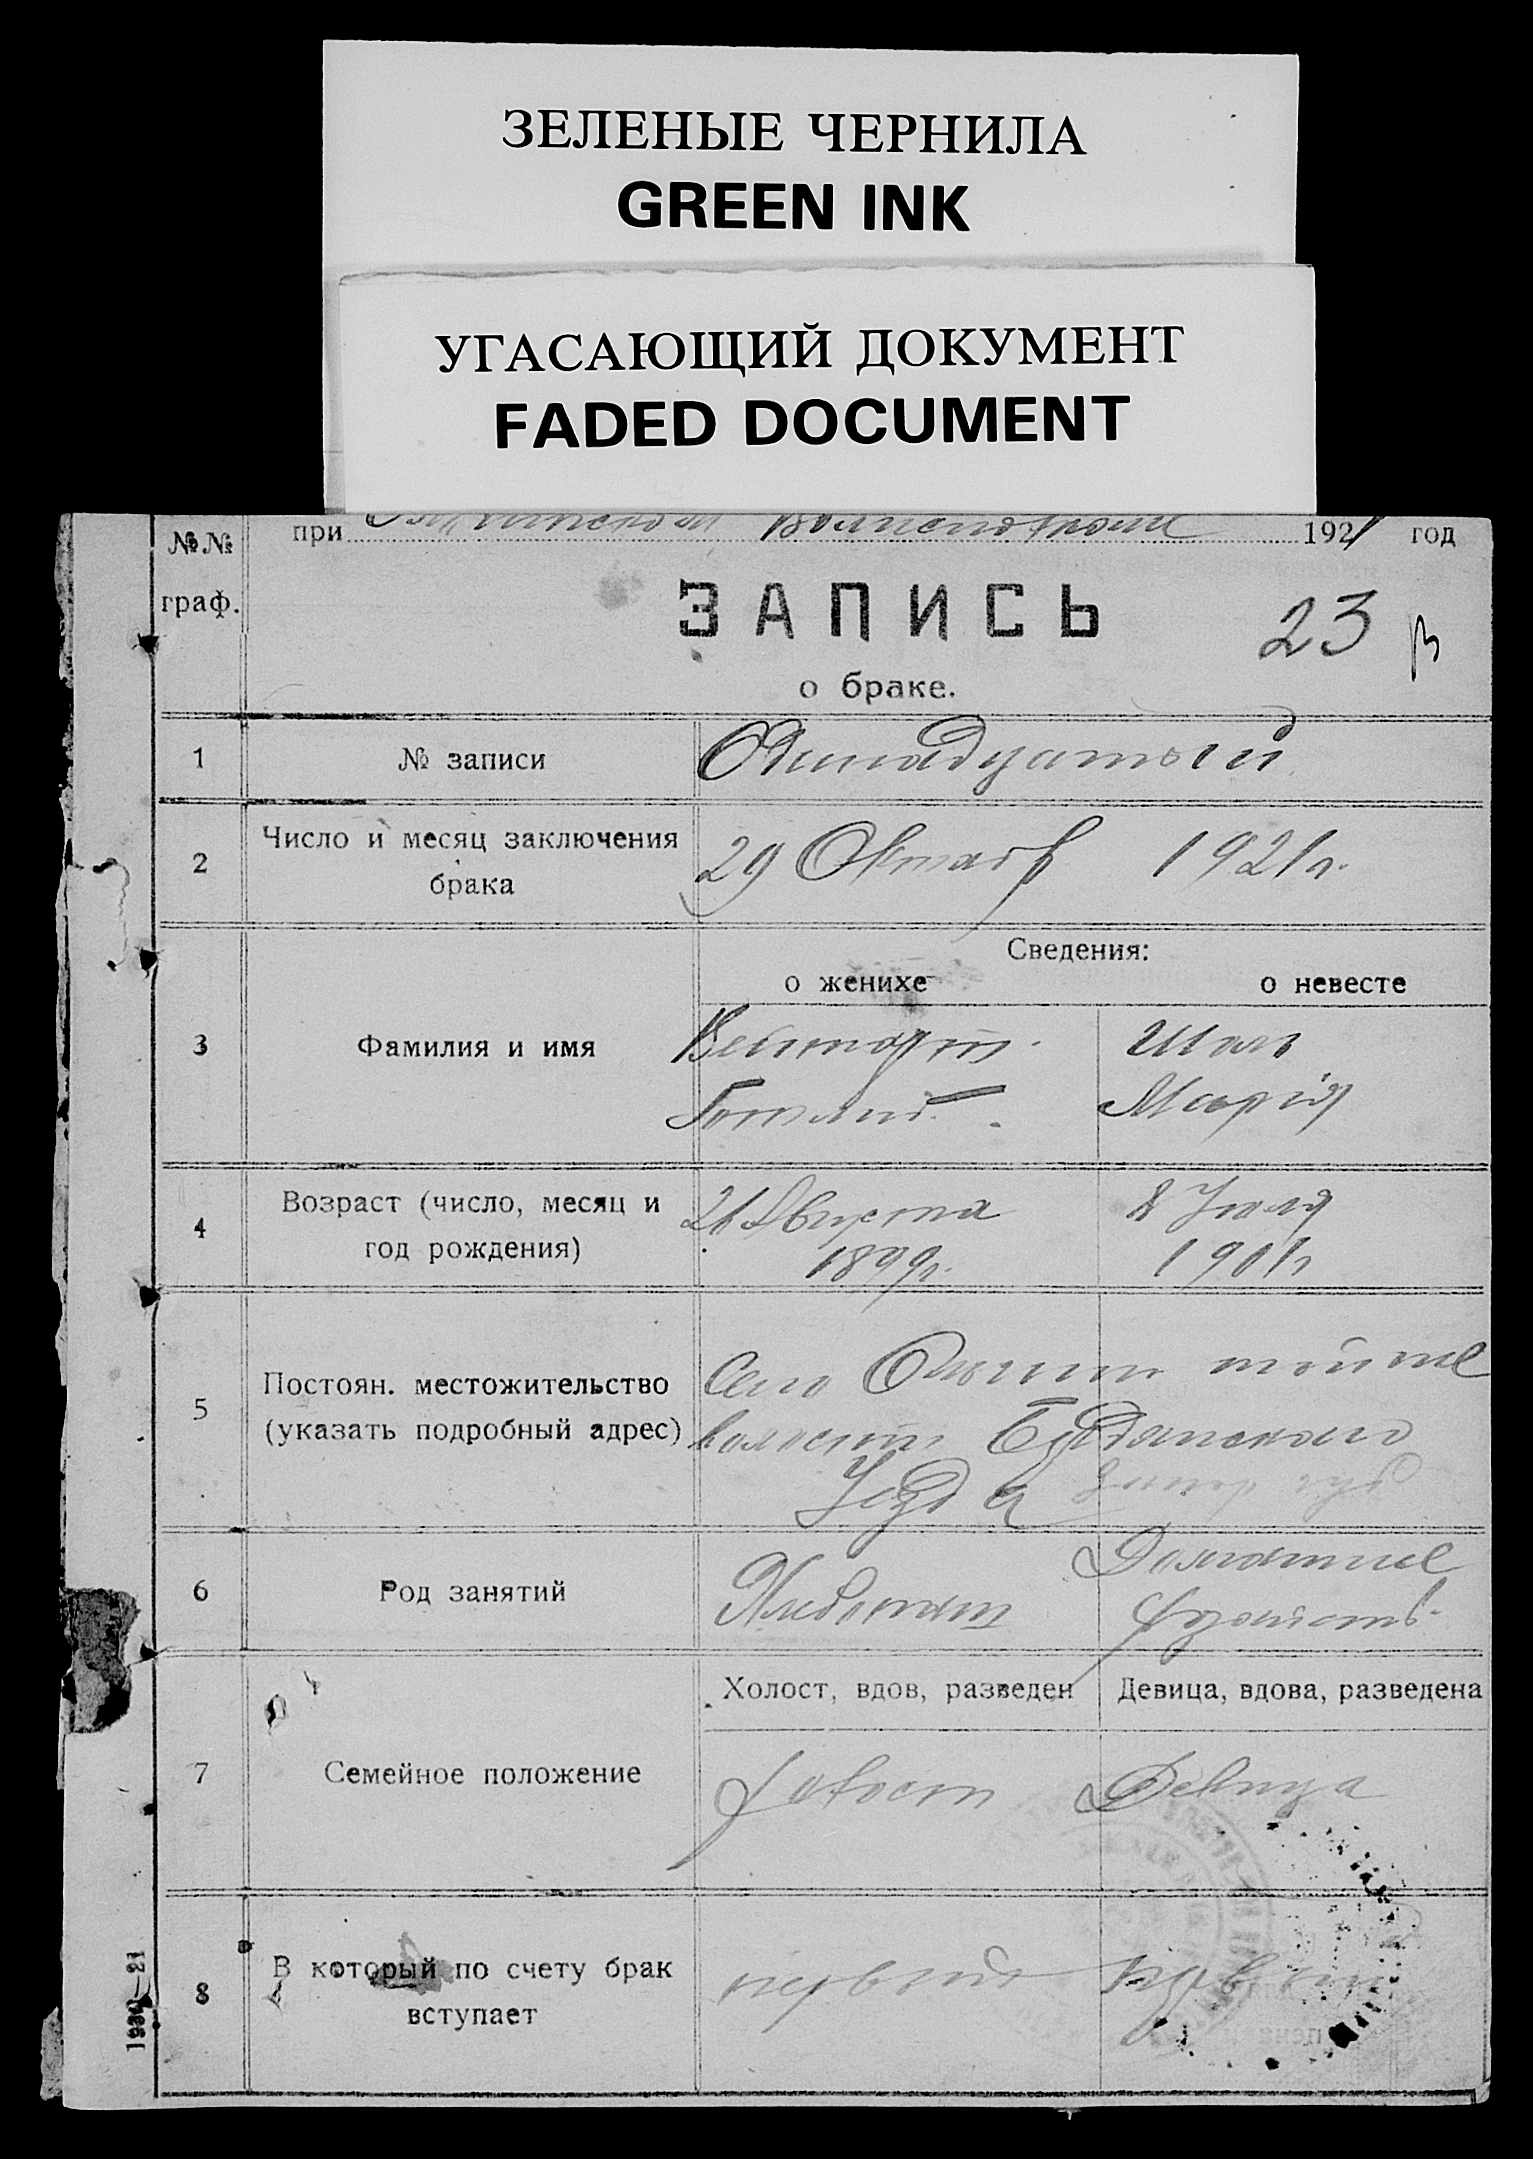 ЗЕЛЕНЫЕ ЧЕРНИЛА
GREEN INK
УГАСАЮЩИЙ ДОКУМЕНТ
FADED DOCUMENT
№№ граф.
при 1921 год
ЗАПИСЬ
23
о браке.
1 № записи Одинадцатый
2 Число и месяц заключения брака 29 Октяб 1921 г.
Сведения:
о женихе о невесте
3 Фамилия и имя
Готлиб. Мария
4 Возраст (число, месяц и год рождения)
21 Августа 8 Июля
1899 г. 1901 г
5 Постоян. местожительство (указать подробный адрес)
Село
волости
Уезда
6 Род занятий
Домашнее
Хлебопаш хозяйств.
7 Семейное положение
Холост, вдов, разведен Девица, вдова, разведена
Холост Девица
8 В который по счету брак вступает
первый первый
1930—21